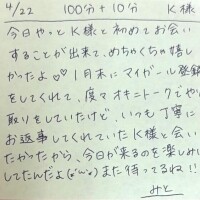 4/22 100分+10分 K様
今日やっとK様と初めてお会い
することが出来て、めちゃくちゃ嬉し
かったよ♡♡ 1月末にマイガール登録
をしてくれて、度々オキニトークでやり
取りをしていたけど、いつも丁寧に
お返事してくれていたK様と会い
たかったから、今日が来るのを楽しみに
してたんだよ(*´ω`*)また待ってるね!!
みと